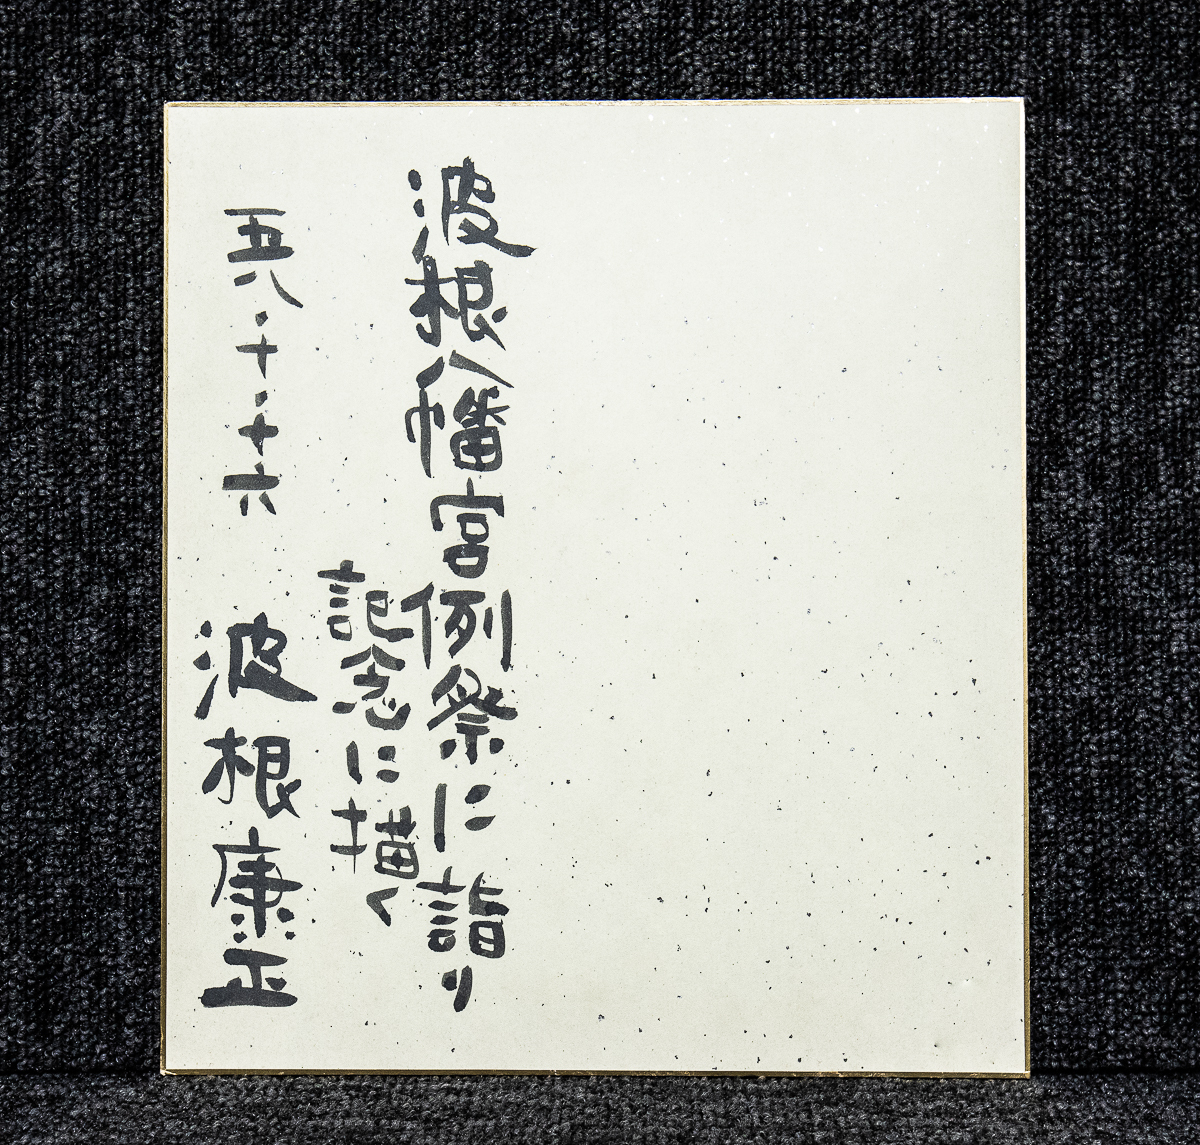 波根八幡宮例祭に詣り
記念に描く
五八・十・十六 波根康正